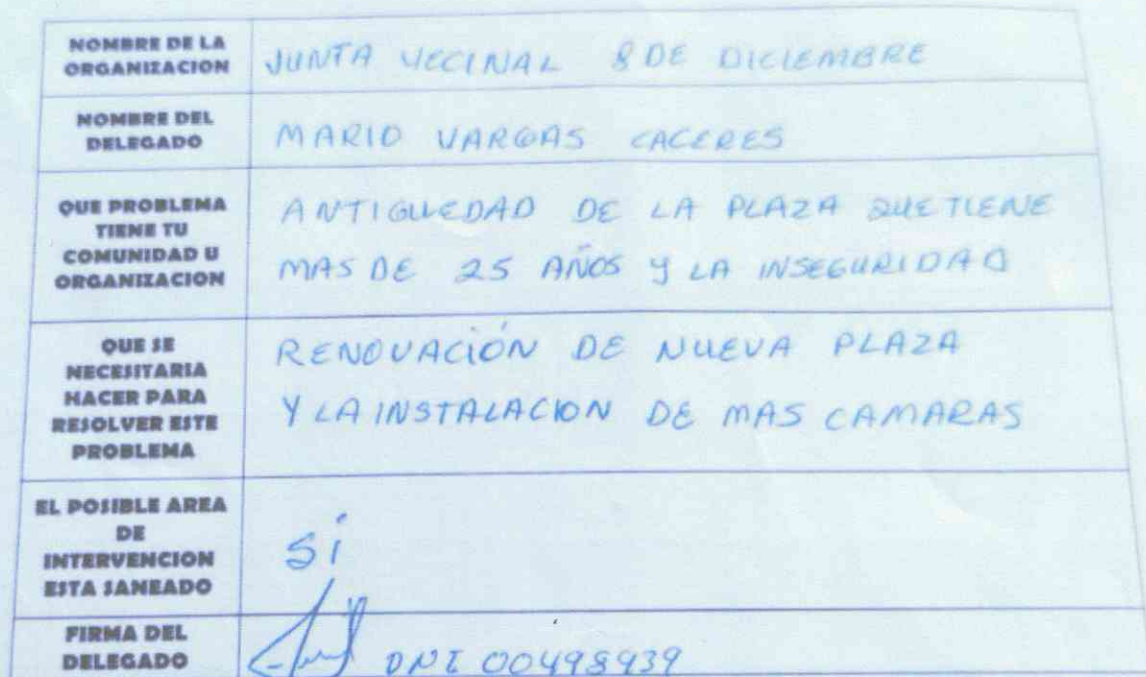 NOMBRE DE LA
ORGANIZACION
JUNTA VECINAL 8 DE DICIEMBRE
NOMBRE DEL
DELEGADO
MARIO VARGAS CACERES
QUE PROBLEMA
TIENE TU
COMUNIDAD U
ORGANIZACION
ANTIGUEDAD DE LA PLAZA QUE TIENE
MAS DE 25 AÑOS Y LA INSEGURIDAD
QUE SE
NECESITARIA
HACER PARA
RESOLVER ESTE
PROBLEMA
RENOVACIÓN DE NUEVA PLAZA
Y LA INSTALACION DE MAS CAMARAS
EL POSIBLE AREA
DE
INTERVENCION
ESTA SANEADO
SI
FIRMA DEL
DELEGADO
DNI 00498939